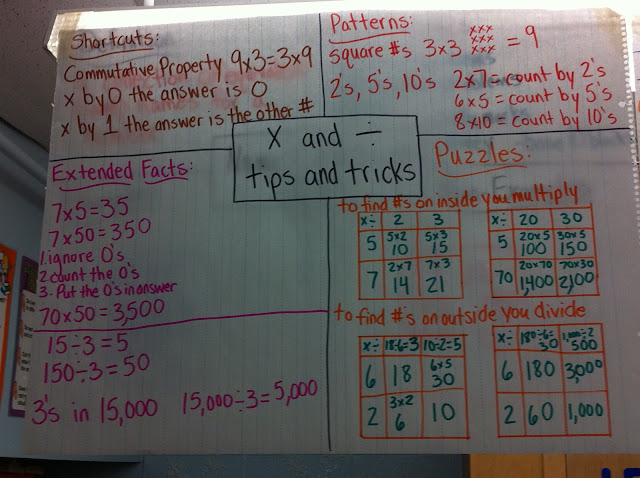 Shortcuts:
Commutative Property 9x3=3x9
x by 0 the answer is 0
x by 1 the answer is the other #
Patterns:
square #s 3x3 xxx xxx xxx = 9
2's, 5's, 10's 2x7= count by 2's
6x5= count by 5's
8x10= count by 10's
x and ÷
tips and tricks
Extended Facts:
7x5=35
7x50=350
1. ignore 0's
2. count the 0's
3. Put the 0's in answer
70x50=3,500
15÷3=5
150÷3=50
3's in 15,000 15,000÷3=5,000
Puzzles:
to find #s on inside you multiply
x÷ 2 3
5 5x2 5x3
10 15
7 2x7 7x3
14 21
x÷ 20 30
5 20x5 30x5
100 150
70 20x70 70x30
1,400 2,100
to find #'s on outside you divide
x÷ 18÷6=3 10÷2=5
6 18 6x5
30
2 3x2 10
6
x÷ 180÷6= 1,000÷2
30 500
6 180 3,000
2 60 1,000